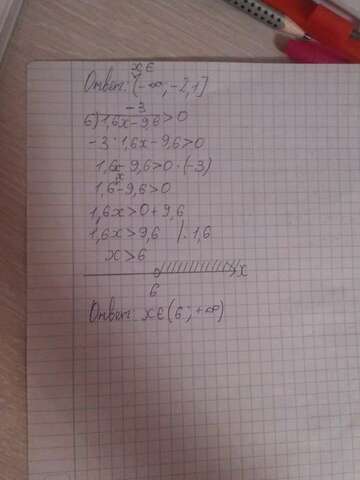 x∈
Ответ: (-∞; -2,1]
-3
б) 1,6x-9,6>0
-3 · 1,6x-9,6>0
1,6x-9,6>0·(-3)
1,6x-9,6>0
1,6x>0+9,6
1,6x>9,6 /:1,6
x>6
x
6
Ответ: x∈(6; +∞)